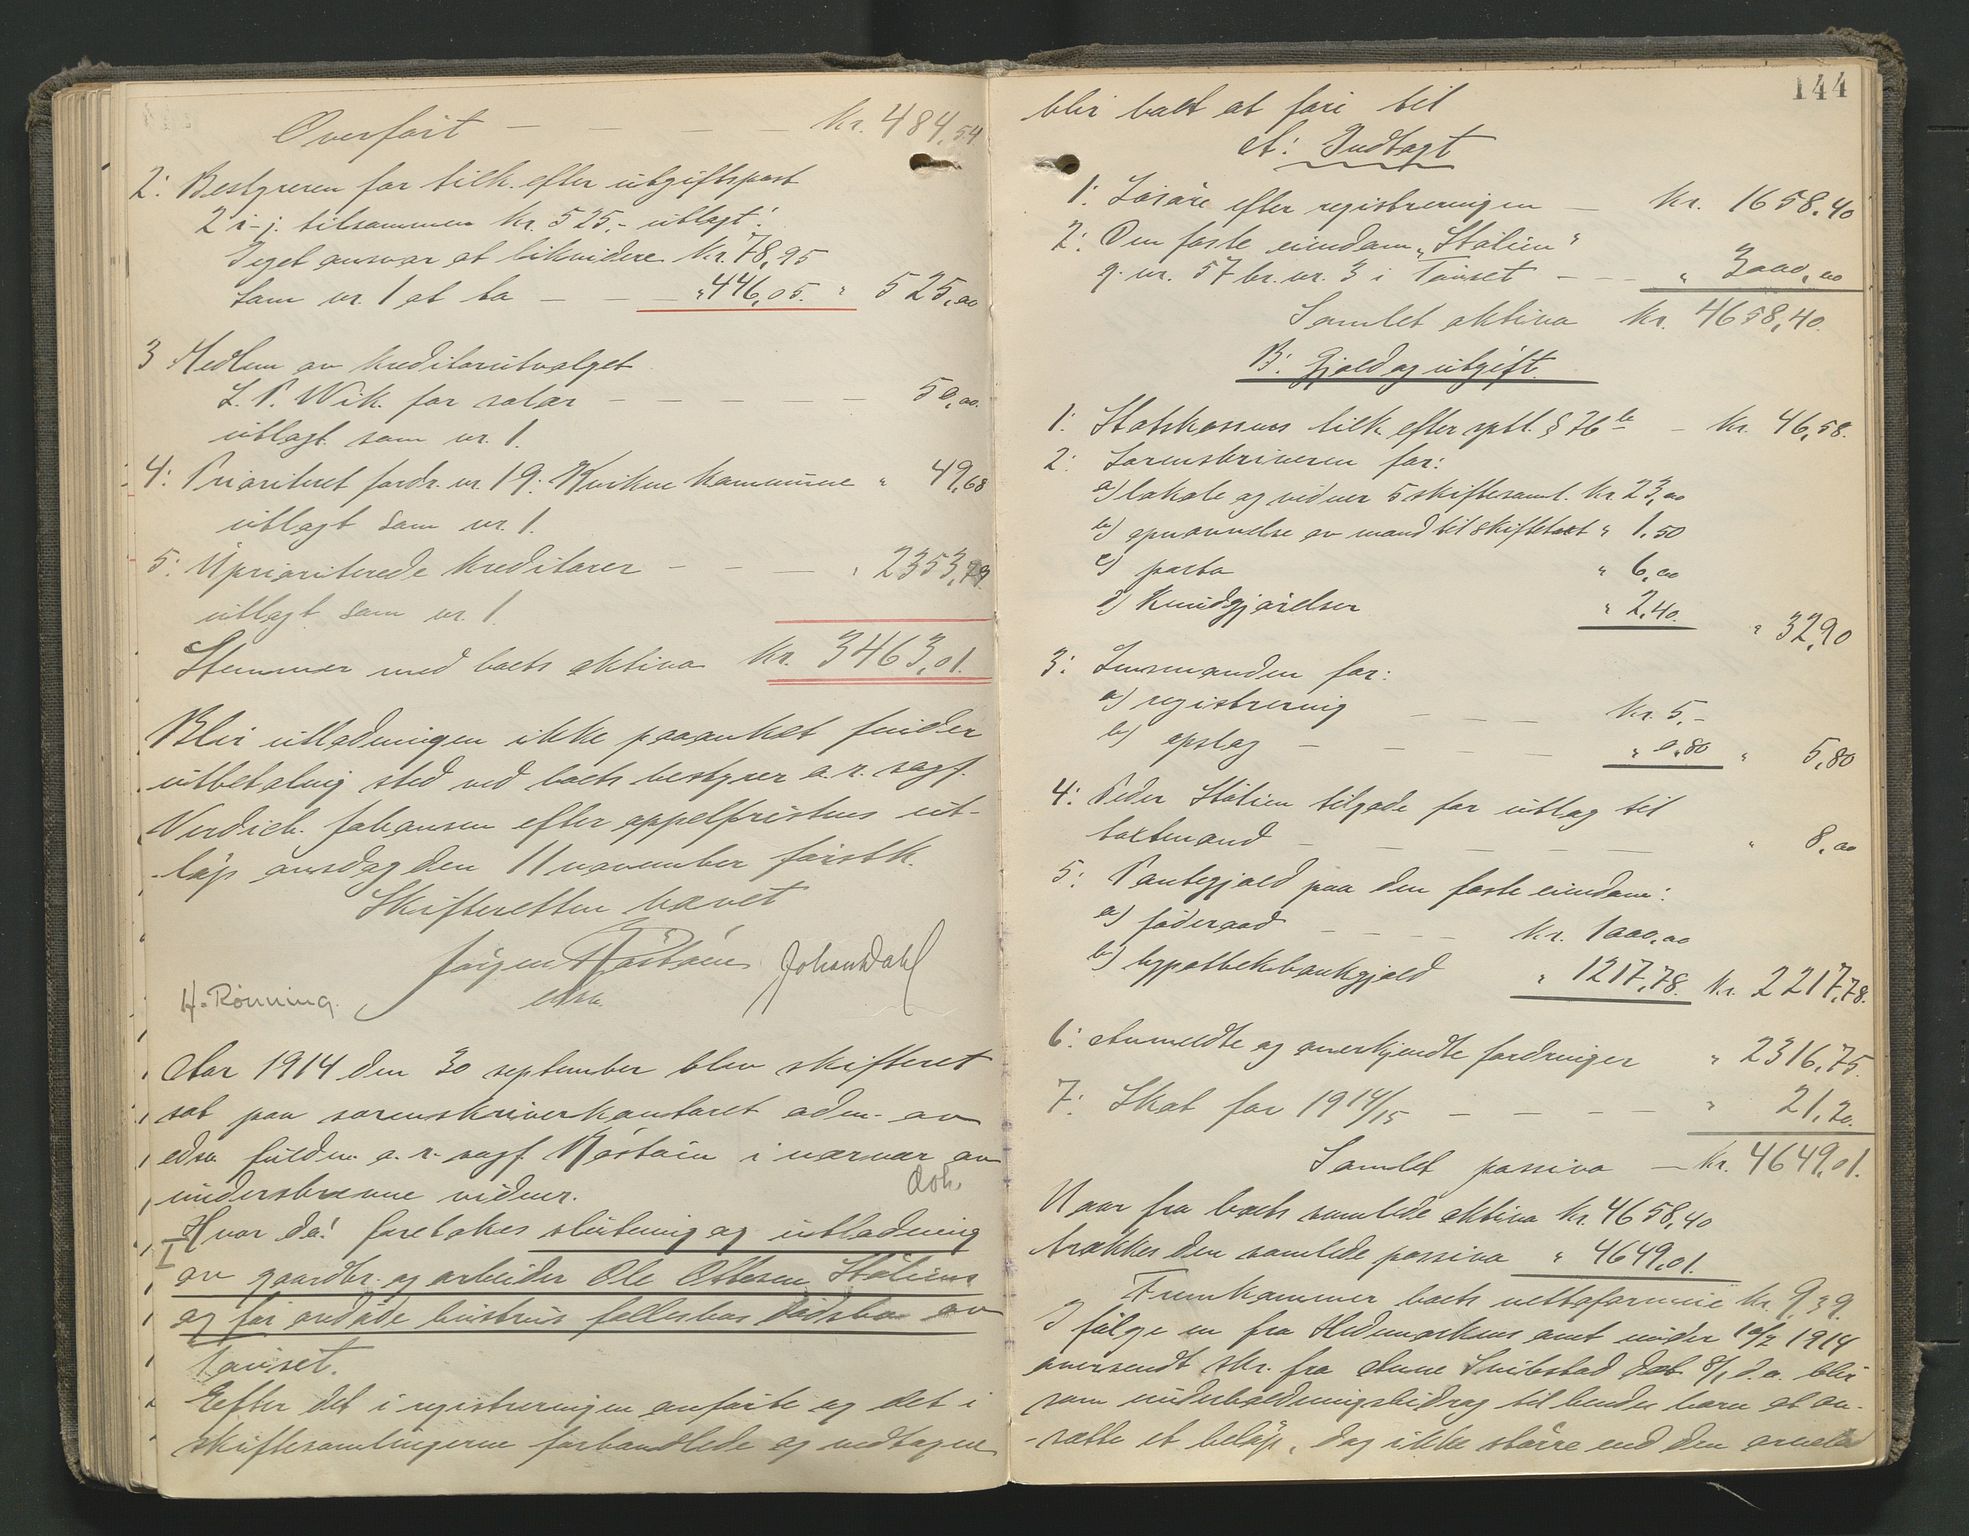 Overført — — — — — kr. 484,54
2: Bestyreren for tilk. efter utgiftspost
2 i-j. tilsammen kr. 525,- utlagt:
Eget ansvar at likvidere kr. 78,95
Som nr. 1 at ta — — " 446,05. " 525,00
3 Medlem av kreditorutvalget
L. P. Wik for salær — — — — — 50,00.
utlagt som nr. 1.
4: Prioritert fordr. nr. 19: Kvikne kommune " 49,68
utlagt som nr. 1.
5: Uprioriterede kreditorer — — — " 2353,79
utlagt som nr. 1.
Stemmer med boets aktiva kr. 3463,01.
Blir utlodningen ikke paaanket finder
utbetaling sted ved boets bestyrer o.r. sagf.
Verdich. Johansen efter appelfristens ut-
løp onsdag den 11 november førstk.
Skifteretten hævet
Jørgen Røstøen Johan Dahl
edsv.
H. Rønning.
Aar 1914 den 30 september blev skifteret
sat paa sorenskriverkontoret adm. av
edsv. fuldm. o.r. sagf. Røstøen i nærvær av
underskrevne vidner.
Hvor da! foretokes slutning og utlodning
av gaardbr. og arbeider Ole Ottesen Støliens
og før avdøde hustrus fællesbos dødsbo av
Tønset.
Efter det i registreringen anførte og det i
skiftesamlingerne forhandlede og vedtagne
144
blir boet at føre til
A: Indtægt
1: Løsøre efter registreringen — kr. 1658,40
2: Den faste eiendom „Stølien"
g. nr. 57 br. nr. 3 i Tønset — — " 3000,00
Samlet aktiva kr. 4658,40.
B: Gjæld og utgift.
1: Statskassens tilk. efter sptl. § 76 b — kr. 46,58.
2: Sorenskriveren for:
a) lokale og vidner 5 skiftesaml. kr. 23,00
b) opnævnelse av mænd til skiftetakst " 1,50
c) porto " 6,00
d) kundgjørelser " 2,40. " 32,90
3: Lensmanden for:
a) registrering — — — kr. 5,-
b) opslag — — — — " 0,80 " 5,80
4: Peder Stølien tilgode for utlæg til
takstmænd — — — — — — " 8,00
5: Pantegjæld paa den faste eiendom:
a) føderaad — — — — kr. 1000,00
b) hypothekbankgjæld " 1217,78. kr. 2217,78.
6: Anmeldte og anerkjendte fordringer " 2316,75.
7: Skat for 1914/15 — — — — " 21,20.
Samlet passiva — kr. 4649,01.
Naar fra boets samlede aktiva kr. 4658,40
trækkes den samlede passiva " 4649,01.
Fremkommer boets nettoformue kr. 9,39.
I følge en fra Hedemarkens amt under 10/2 1914
oversendt skr. fra Anne 8/1 d.a. blir
som underholdningsbidrag til hendes barn at av-
-sætte et beløp, dog ikke større end den